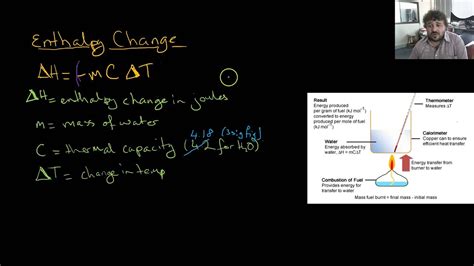 Enthalpy Change
ΔH = -m C ΔT
ΔH = enthalpy change in joules
m = mass of water
4.18 (3 sig fig)
C = thermal capacity (4.2 for H₂O)
ΔT = change in temp
Result
Energy produced
per gram of fuel (kJ mol⁻¹)
converted to energy
produced per mole of fuel
(kJ mol⁻¹)
Thermometer
Measures ΔT
Water
Energy absorbed by
water, ΔH = mCΔT
Calorimeter
Copper can to ensure
efficient heat transfer
Energy transfer from
burner to water
Combustion of Fuel
Provides energy for
transfer to water
Mass fuel burnt = final mass - initial mass